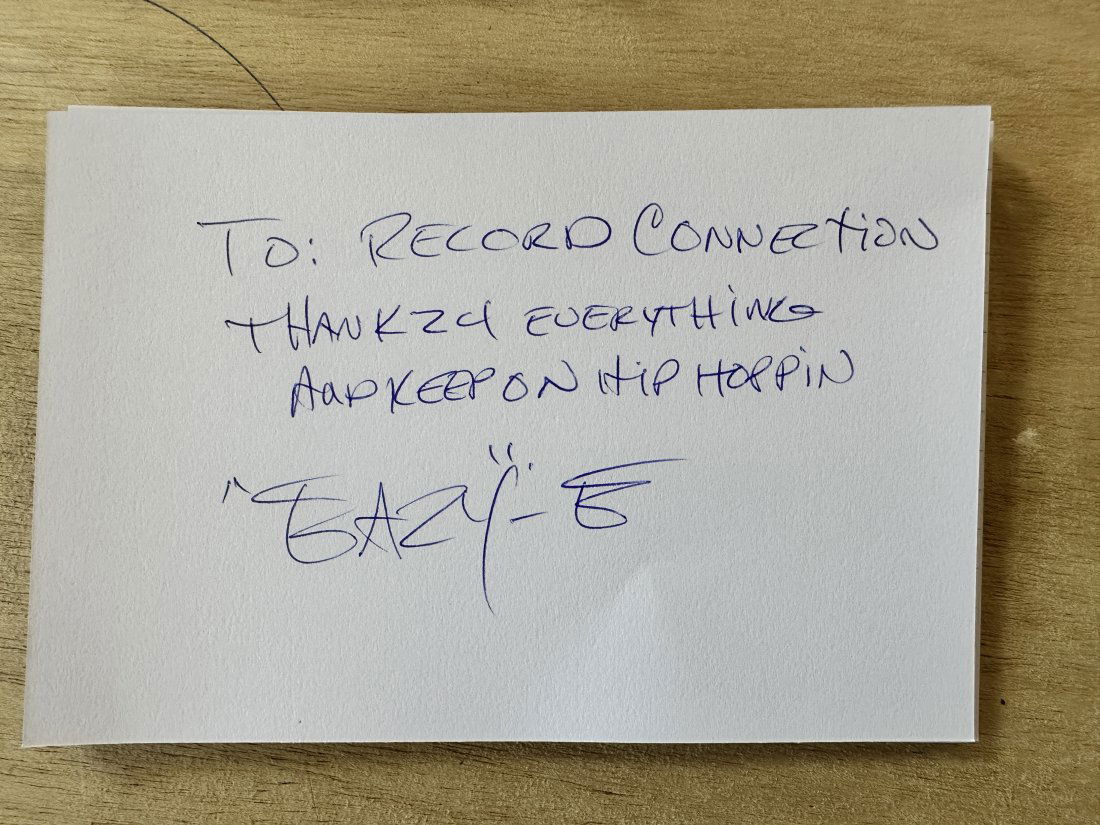 To: RECORD CONNECTION
THANKZ 4 EVERYTHING
AND KEEP ON HIP HOPPIN
"EAZY"-E